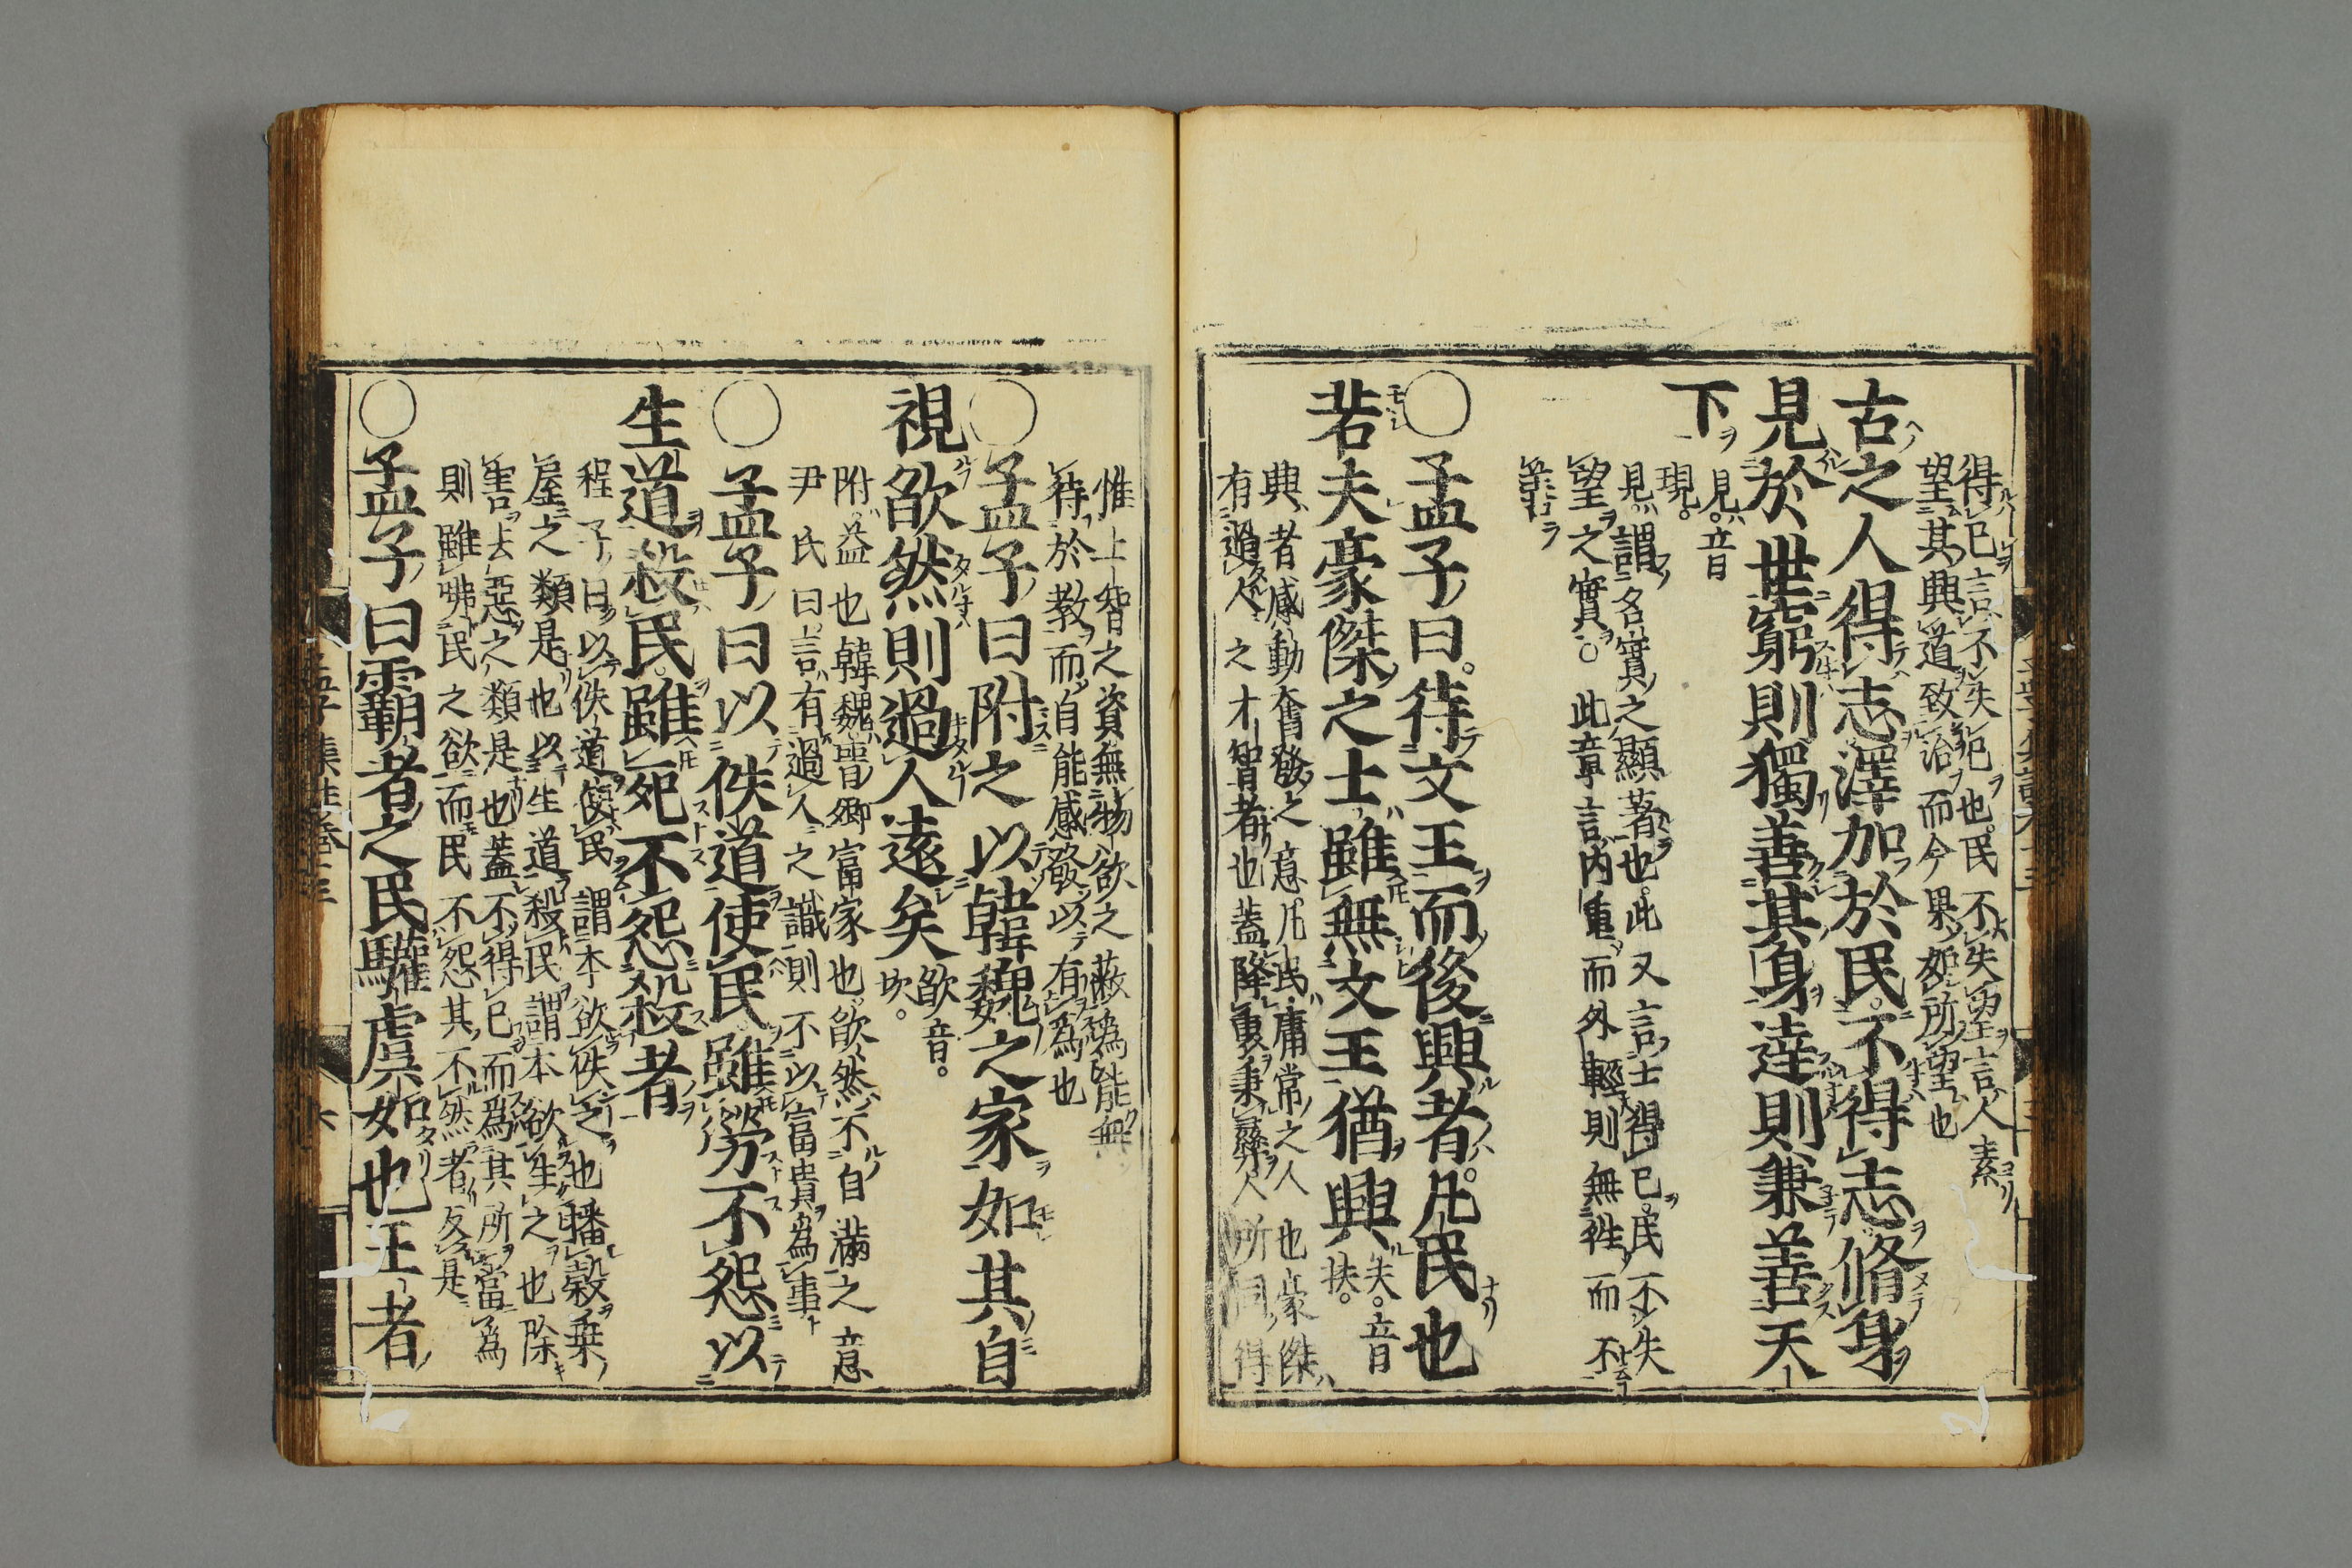 得己言不失己也民不失望言人素
望其興道致治而今果如所望也
古之人得志澤加於民不得志脩身
見於世窮則獨善其身達則兼善天
下
見音
現
見謂名實之顯著也此又言士得己民不失
望之實○此章言內重而外輕則無往而不
善
○孟子曰待文王而後興者凡民也
若夫豪傑之士雖無文王猶興
夫音
扶
興者感動奮發之意凡民庸常之人也豪傑
有過人之才智者也蓋降衷秉彝人所同得
惟上智之資無物欲之蔽爲能無
待於教而自能感發以有爲也
○孟子曰附之以韓魏之家如其自
視欿然則過人遠矣
欿音
坎
附益也韓魏晉卿富家也欿然不自滿之意
尹氏曰言有過人之識則不以富貴爲事
○孟子曰以佚道使民雖勞不怨以
生道殺民雖死不怨殺者
程子曰以佚道使民謂本欲佚之也播穀乗
屋之類是也以生道殺民謂本欲生之也除
害去惡之類是也蓋不得已而爲其所當爲
則雖咈民之欲而民不怨其不然者反是
○孟子曰霸者之民驩虞如也王者